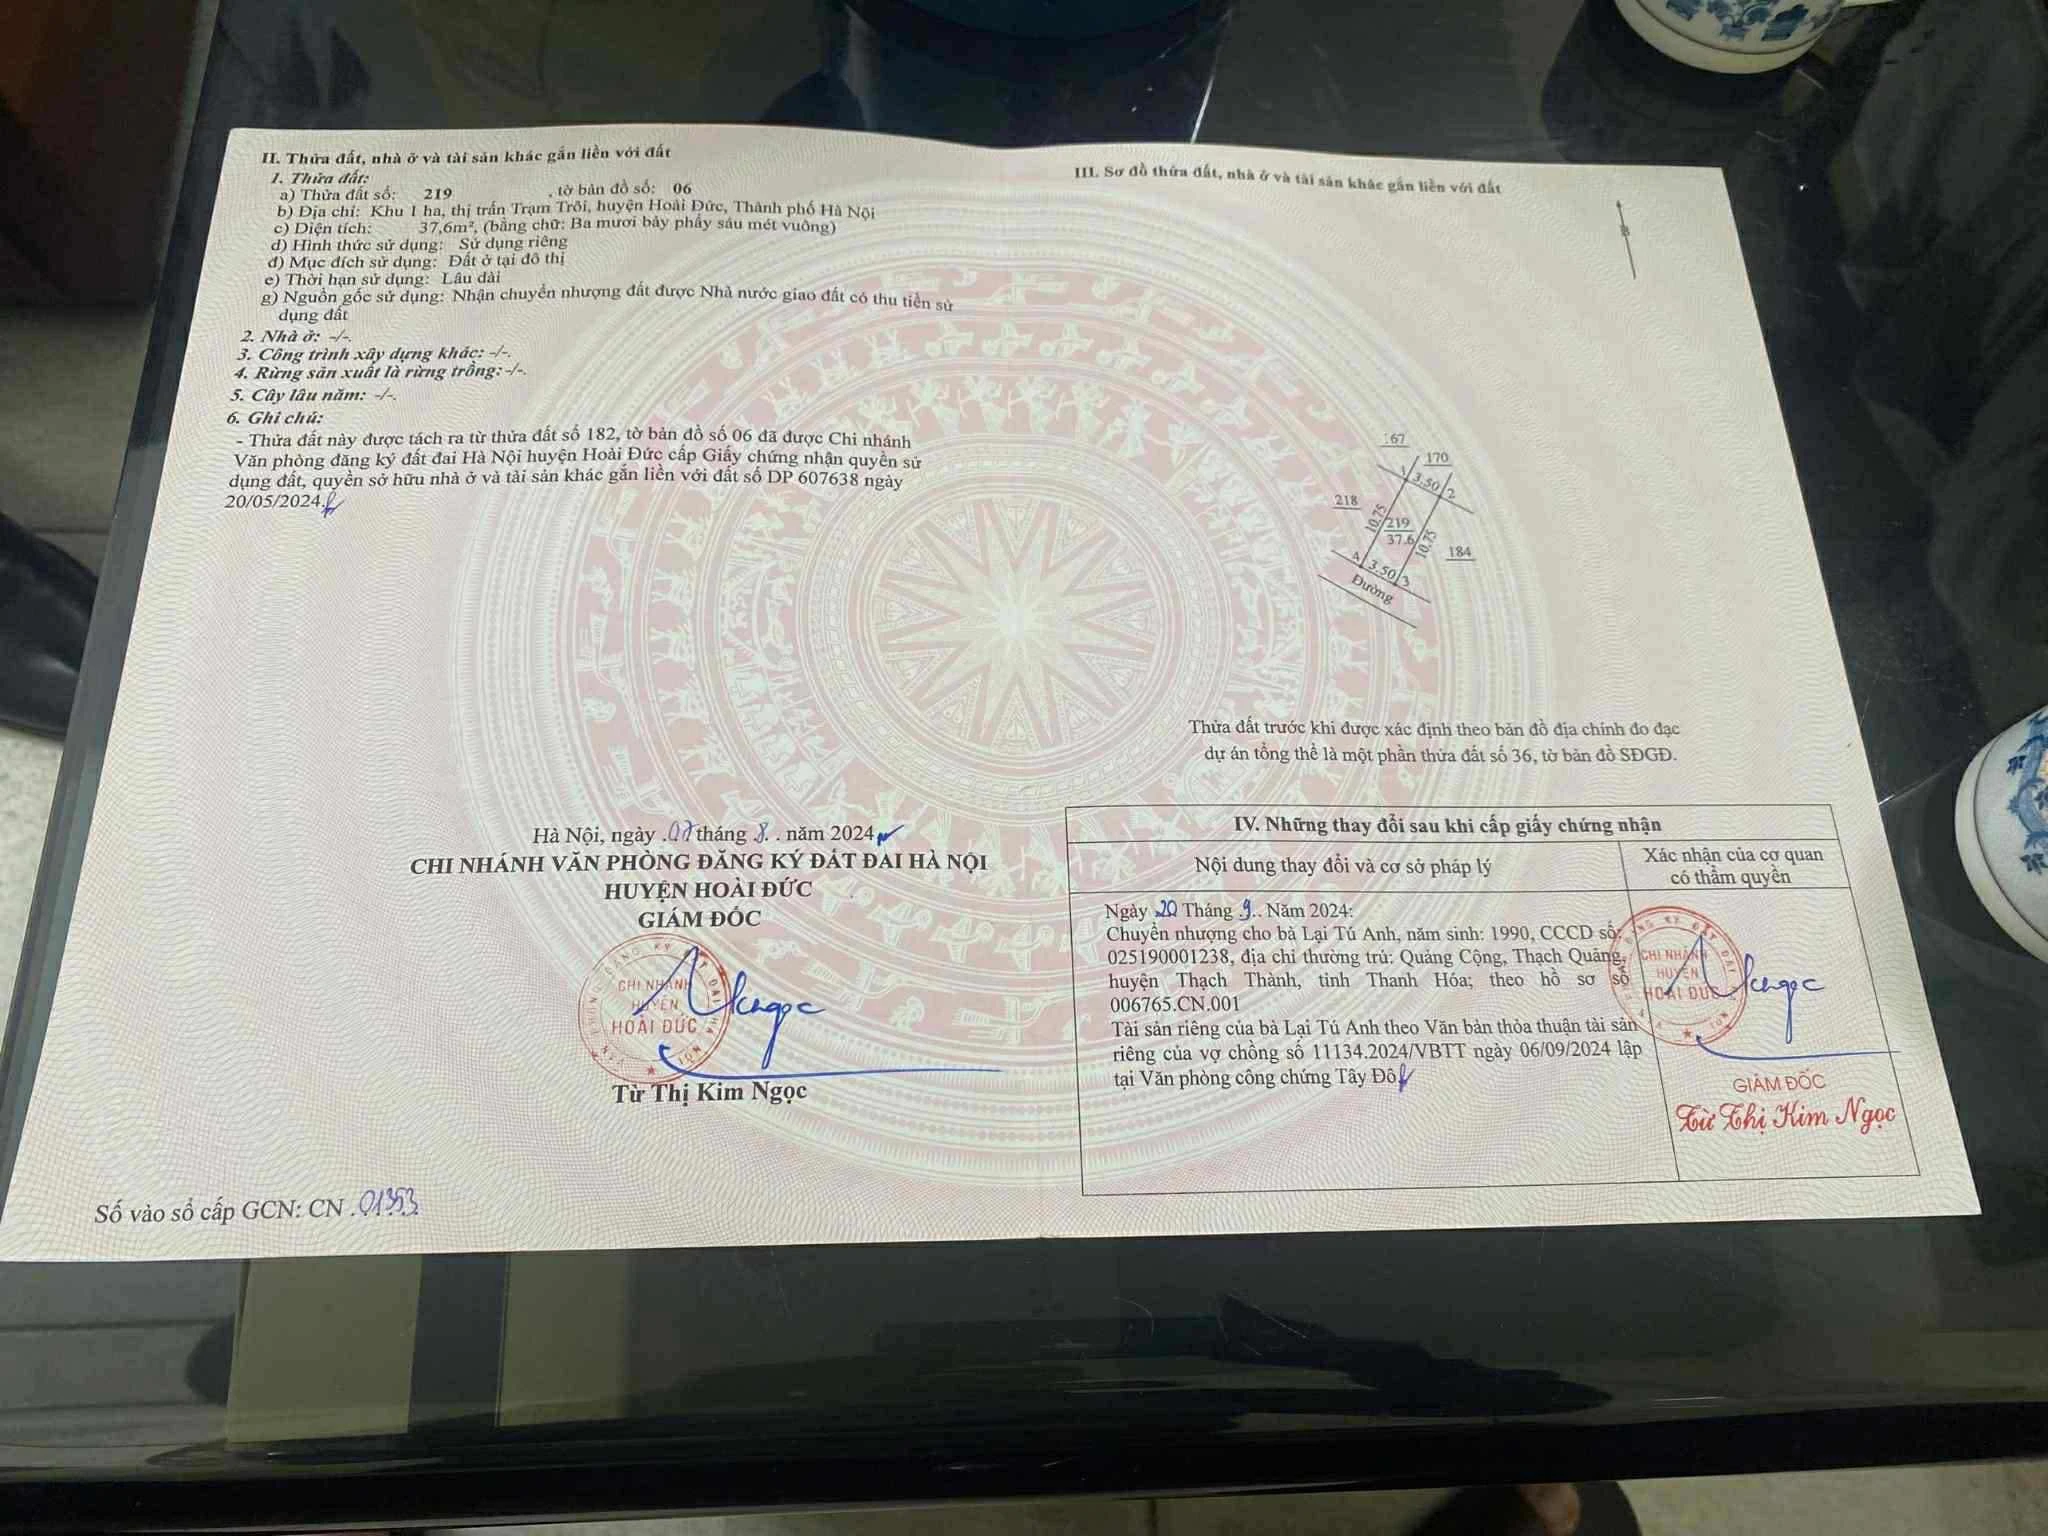 II. Thửa đất, nhà ở và tài sản khác gắn liền với đất
1. Thửa đất:
a) Thửa đất số: 219 , tờ bản đồ số: 06
b) Địa chỉ: Khu 1 ha, thị trấn Trạm Trôi, huyện Hoài Đức, Thành phố Hà Nội
c) Diện tích: 37,6m², (bằng chữ: Ba mươi bảy phẩy sáu mét vuông)
d) Hình thức sử dụng: Sử dụng riêng
đ) Mục đích sử dụng: Đất ở tại đô thị
e) Thời hạn sử dụng: Lâu dài
g) Nguồn gốc sử dụng: Nhận chuyển nhượng đất được Nhà nước giao đất có thu tiền sử
dụng đất
2. Nhà ở: -/-.
3. Công trình xây dựng khác: -/-.
4. Rừng sản xuất là rừng trồng: -/-.
5. Cây lâu năm: -/-.
6. Ghi chú:
- Thửa đất này được tách ra từ thửa đất số 182, tờ bản đồ số 06 đã được Chi nhánh
Văn phòng đăng ký đất đai Hà Nội huyện Hoài Đức cấp Giấy chứng nhận quyền sử
dụng đất, quyền sở hữu nhà ở và tài sản khác gắn liền với đất số DP 607638 ngày
20/05/2024.
Hà Nội, ngày 07 tháng 8 năm 2024
CHI NHÁNH VĂN PHÒNG ĐĂNG KÝ ĐẤT ĐAI HÀ NỘI
HUYỆN HOÀI ĐỨC
GIÁM ĐỐC
CHI NHÁNH
HUYỆN
HOÀI ĐỨC
Từ Thị Kim Ngọc
Số vào sổ cấp GCN: CN 01353
III. Sơ đồ thửa đất, nhà ở và tài sản khác gắn liền với đất
B
167
170
1 3.50 2
218
10.75
219
37.6
10.75
184
4 3.50 3
Đường
Thửa đất trước khi được xác định theo bản đồ địa chính đo đạc
dự án tổng thể là một phần thửa đất số 36, tờ bản đồ SĐGĐ.
IV. Những thay đổi sau khi cấp giấy chứng nhận
Nội dung thay đổi và cơ sở pháp lý
Xác nhận của cơ quan
có thẩm quyền
Ngày 20 Tháng 9 Năm 2024:
Chuyển nhượng cho bà Lại Tú Anh, năm sinh: 1990, CCCD số:
025190001238, địa chỉ thường trú: Quảng Cộng, Thạch Quảng,
huyện Thạch Thành, tỉnh Thanh Hóa; theo hồ sơ số
006765.CN.001
Tài sản riêng của bà Lại Tú Anh theo Văn bản thỏa thuận tài sản
riêng của vợ chồng số 11134.2024/VBTT ngày 06/09/2024 lập
tại Văn phòng công chứng Tây Đô
CHI NHÁNH
HUYỆN
HOÀI ĐỨC
GIÁM ĐỐC
Từ Thị Kim Ngọc